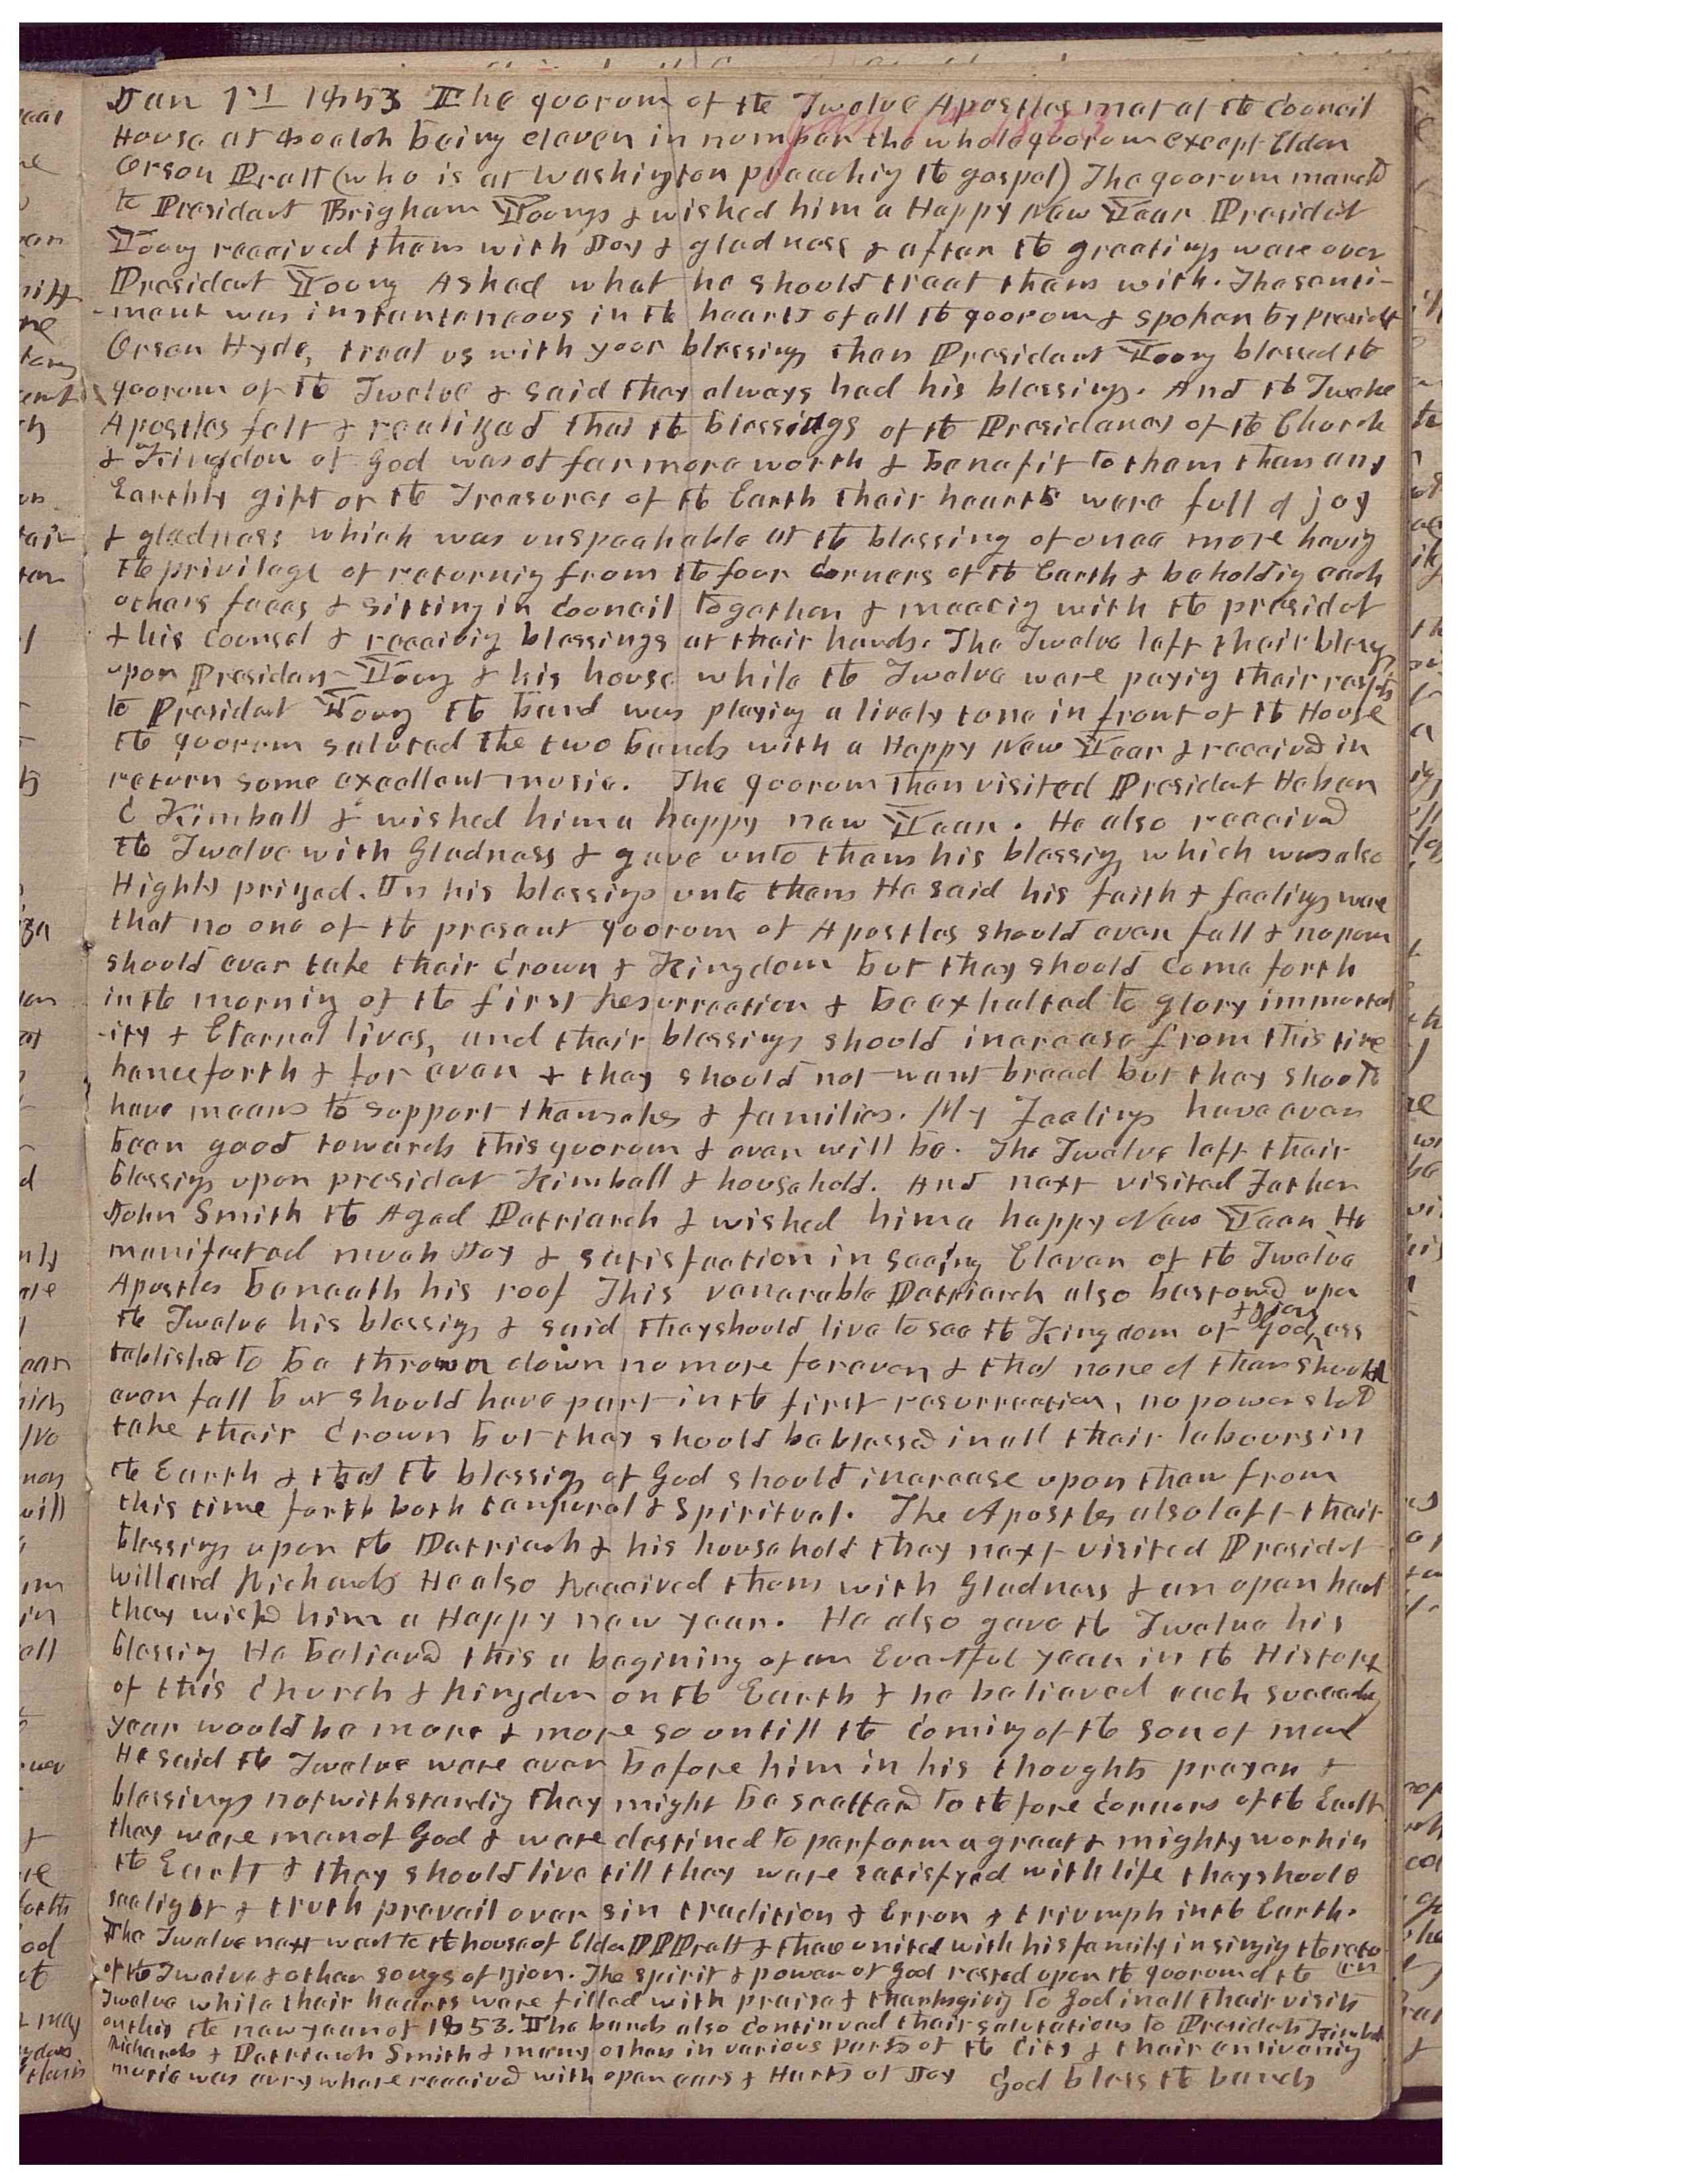 Jan 1st 1853 The quorum of the Twelve Apostles met at the Council
House at 9 oclock being eleven in number the whole quorum except Elder
Orson Pratt (who is at Washington preaching the gospel) The quorum marchd
to President Brigham Youngs & wished him a Happy New Year Presidet
Young received them with Joy & gladness & after the greetings were over
President Young Asked what he should treat them with. The senti-
-ment was instantaneous in the hearts of all the quorum & spoken by Presidet
Orson Hyde, treat us with your blessings then President Young blessed the
quorum of the Twelve & said they always had his blessings. And the Twelve
Apostles felt & realized that the blessings of the Presidency of the Church
& Kingdom of God was of far more worth & benefit to them than any
Earthly gift or the Treasures of the Earth their hearts were full of joy
& gladness which was unspeakable at the blessing of once more havig
the privilege of returnig from the four Corners of the Earth & beholdig each
others faces & sitting in Council together & meetig with the presidet
& his Counsel & receivig blessings at their hands. The Twelve left their blessigs
upon Presiden Young & his house while the Twelve were payig their respets
to President Young the band was playing a lively tune in front of the House
the quorum saluted the two bands with a Happy New Year & receivd in
return some excellent music. The quorum then visited President Heber
C Kimball & wished him a happy new Year. He also receivd
the Twelve with Gladness & gave unto them his blessigs which was also
Highly prized. In his blessings unto them He said his faith & feelings were
that no one of the present quorum of Apostles should ever fall & no power
should ever take their Crown & Kingdom but they should come forth
in the morning of the first Resurrection & be exhalted to glory immortal
-ity & Eternal lives, and their blessings should increase from this time
henceforth & for ever & they should not want bread but they should
have means to support themselves & families. My Feelings have ever
been good towards this quorum & ever will be. The Twelve left their
blessigs upon presidet Kimball & household. And next visited Father
John Smith the Aged Patriarch & wished him a happy New Year He
manifested much Joy & satisfaction in seeing Eleven of the Twelve
Apostles beneath his roof This venerable Patriarch also bestowd upon
the Twelve his blessigs & said they should live to see the Kingdom of God & Zion ess
tablishd to be thrown down no more forever & that none of them should
ever fall but should have part in the first resurrection, no power shld
take their Crown but they should be blessed in all their labours in
the Earth & that the blessigs of God should increase upon them from
this time forth both temporal & spiritual. The Apostles also left their
blessings upon the Patriach & his household they next visited Presidet
Willard Richards He also Received them with Gladness & an open hart
they wishd him a Happy new year. He also gave the Twelve his
blessig He believd this a begining of an Eventful year in the History
of this Church & kingdom on the Earth & he believed each succeedig
year would be more & more so untill the coming of the son of man
He said the Twelve were ever before him in his thoughts prayer &
blessings notwithstandig they might be scatterd to the fore corners of the Earth
they were men of God & were destined to perform a great & mighty work in
the Earth & they should live till they were satisfyed with life they should
see light & truth prevail over sin tradition & Error & triumph in the Earth.
The Twelve next went to the house of Elder P P Pratt & there united with his family in singig the retu
of the Twelve & other songs of Zion. The spirit & power of God rested upon the quorum of the rn
Twelve while their hearts were filled with praise & thanksgivig to God in all their visits
on this the new year of 1853. The bands also continued their salutations to Presidets Kimball
Richards & Patriarch Smith & many others in various parts of the City & their enlivenig
music was evry where receivd with open ears & Harts of Joy God bless the bands